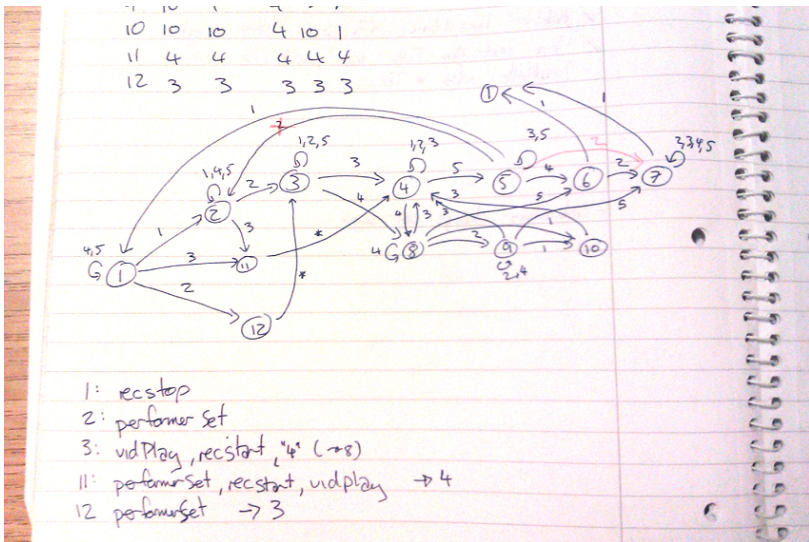 10 10 10 4 10 1
11 4 4 4 4 4
12 3 3 3 3 3
1
1
1
1
2
3,5
2
1,2,5
1,2,3
2,3,4,5
1,4,5
3
5
4
2
2
3
4
5
6
7
2
4
3
5
3
1
3
4
3
3
5
1
*
2
4,5
3
4
8
9
1
10
1
11
2,4
2
*
12
1: recstop
2: performerSet
3: vidPlay, recstart, "4" (→8)
11: performerSet, recstart, vidplay → 4
12 performerSet → 3